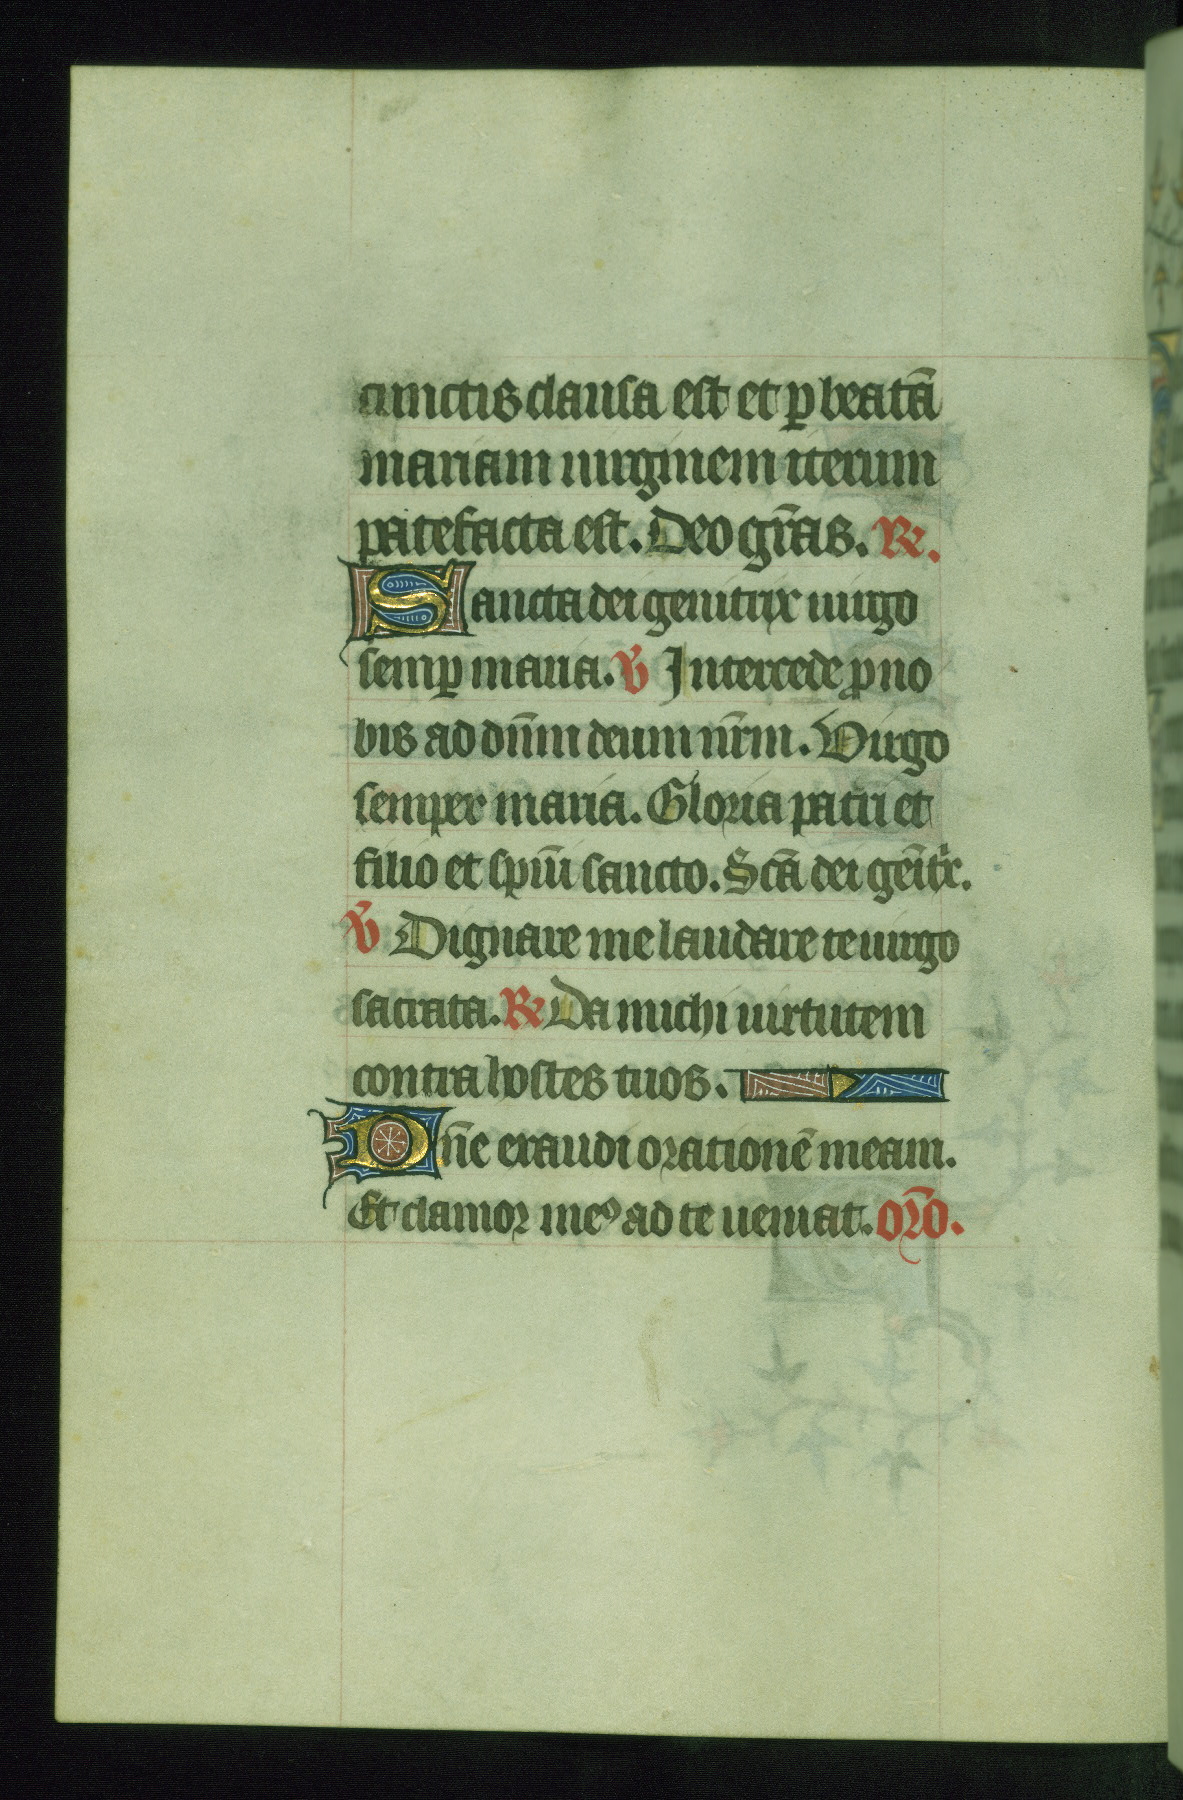 cunctis clausa est et ꝑ beatā
mariam uirginem iterum
patefacta est. Deo gr̄as. ℟.
Sancta dei genitrix uirgo
semꝑ maria. ℣ Intercede ꝓ no
bis ad dn̄m deum nr̄m. Virgo
semper maria. Gloria patri et
filio et spiūi sancto. Scā dei gēitx̄.
℣ Dignare me laudare te uirgo
sacrata. ℟ Da michi uirtutem
contra hostes tuos.
Dn̄e exaudi orationē meam.
Et clamor meꝰ ad te ueniat. or̄o.